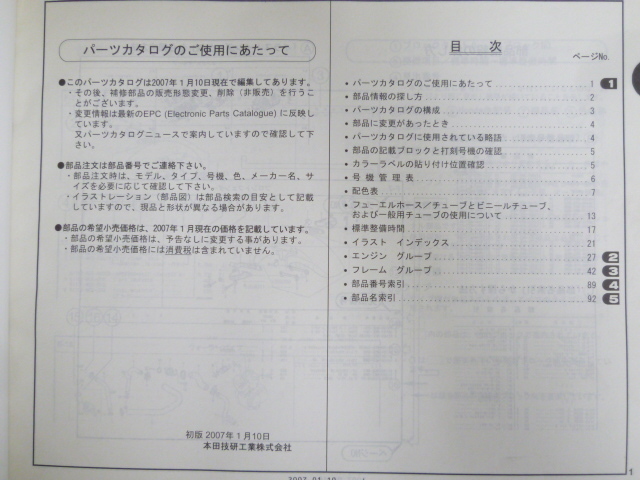 パーツカタログのご使用にあたって
●このパーツカタログは2007年1月10日現在で編集してあります。
・その後、補修部品の販売形態変更、削除（非販売）を行うこ
とがございます。
・変更情報は最新のEPC (Electronic Parts Catalogue) に反映し
ています。
又パーツカタログニュースで案内していますので確認して下
さい。
●部品注文は部品番号でご連絡下さい。
・部品注文時は、モデル、タイプ、号機、色、メーカー名、サ
イズを必要に応じて確認して下さい。
・イラストレーション（部品図）は部品検索の目安として記載
していますので、現品と形状が異なる場合があります。
●部品の希望小売価格は、2007年1月現在の価格を記載しています。
・部品の希望小売価格は、予告なしに変更する事があります。
・部品の希望小売価格には消費税は含まれていません。
初版 2007年1月10日
本田技研工業株式会社
目 次
ページNo.
• パーツカタログのご使用にあたって 1 1
• 部品情報の探し方 2
• パーツカタログの構成 3
• 部品に変更があったとき 4
• パーツカタログに使用されている略語 4
• 部品の記載ブロックと打刻号機の確認 5
• カラーラベルの貼り付け位置確認 5
• 号 機 管 理 表 6
• 配色表 7
• フューエルホース／チューブとビニールチューブ、
および一般用チューブの使用について 13
• 標準整備時間 17
• イラスト インデックス 21
• エンジン グループ 27 2
• フレーム グループ 42 3
• 部品番号索引 89 4
• 部品名索引 92 5
1